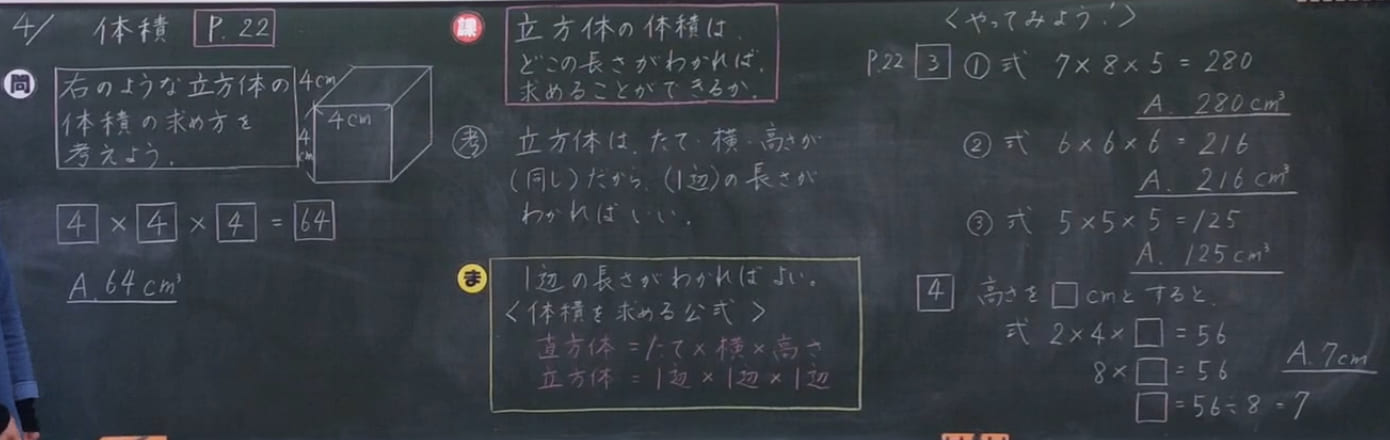 4/ 体積 P.22
問 右のような立方体の
体積の求め方を
考えよう。
4cm
4cm
4cm
4 × 4 × 4 = 64
A. 64cm³
課 立方体の体積は、
どこの長さがわかれば、
求めることができるか。
考 立方体は、たて・横・高さが
(同し)だから、(1辺)の長さが
わかればいい。
ま 1辺の長さがわかればよい。
〈体積を求める公式〉
直方体 = たて×横×高さ
立方体 = 1辺×1辺×1辺
〈やってみよう!〉
P.22 3 ① 式 7×8×5 = 280
A. 280cm³
② 式 6×6×6 = 216
A. 216cm³
③ 式 5×5×5 = 125
A. 125cm³
4 高さを□cmとすると、
式 2×4×□ = 56
8×□ = 56
□ = 56÷8 = 7
A. 7cm